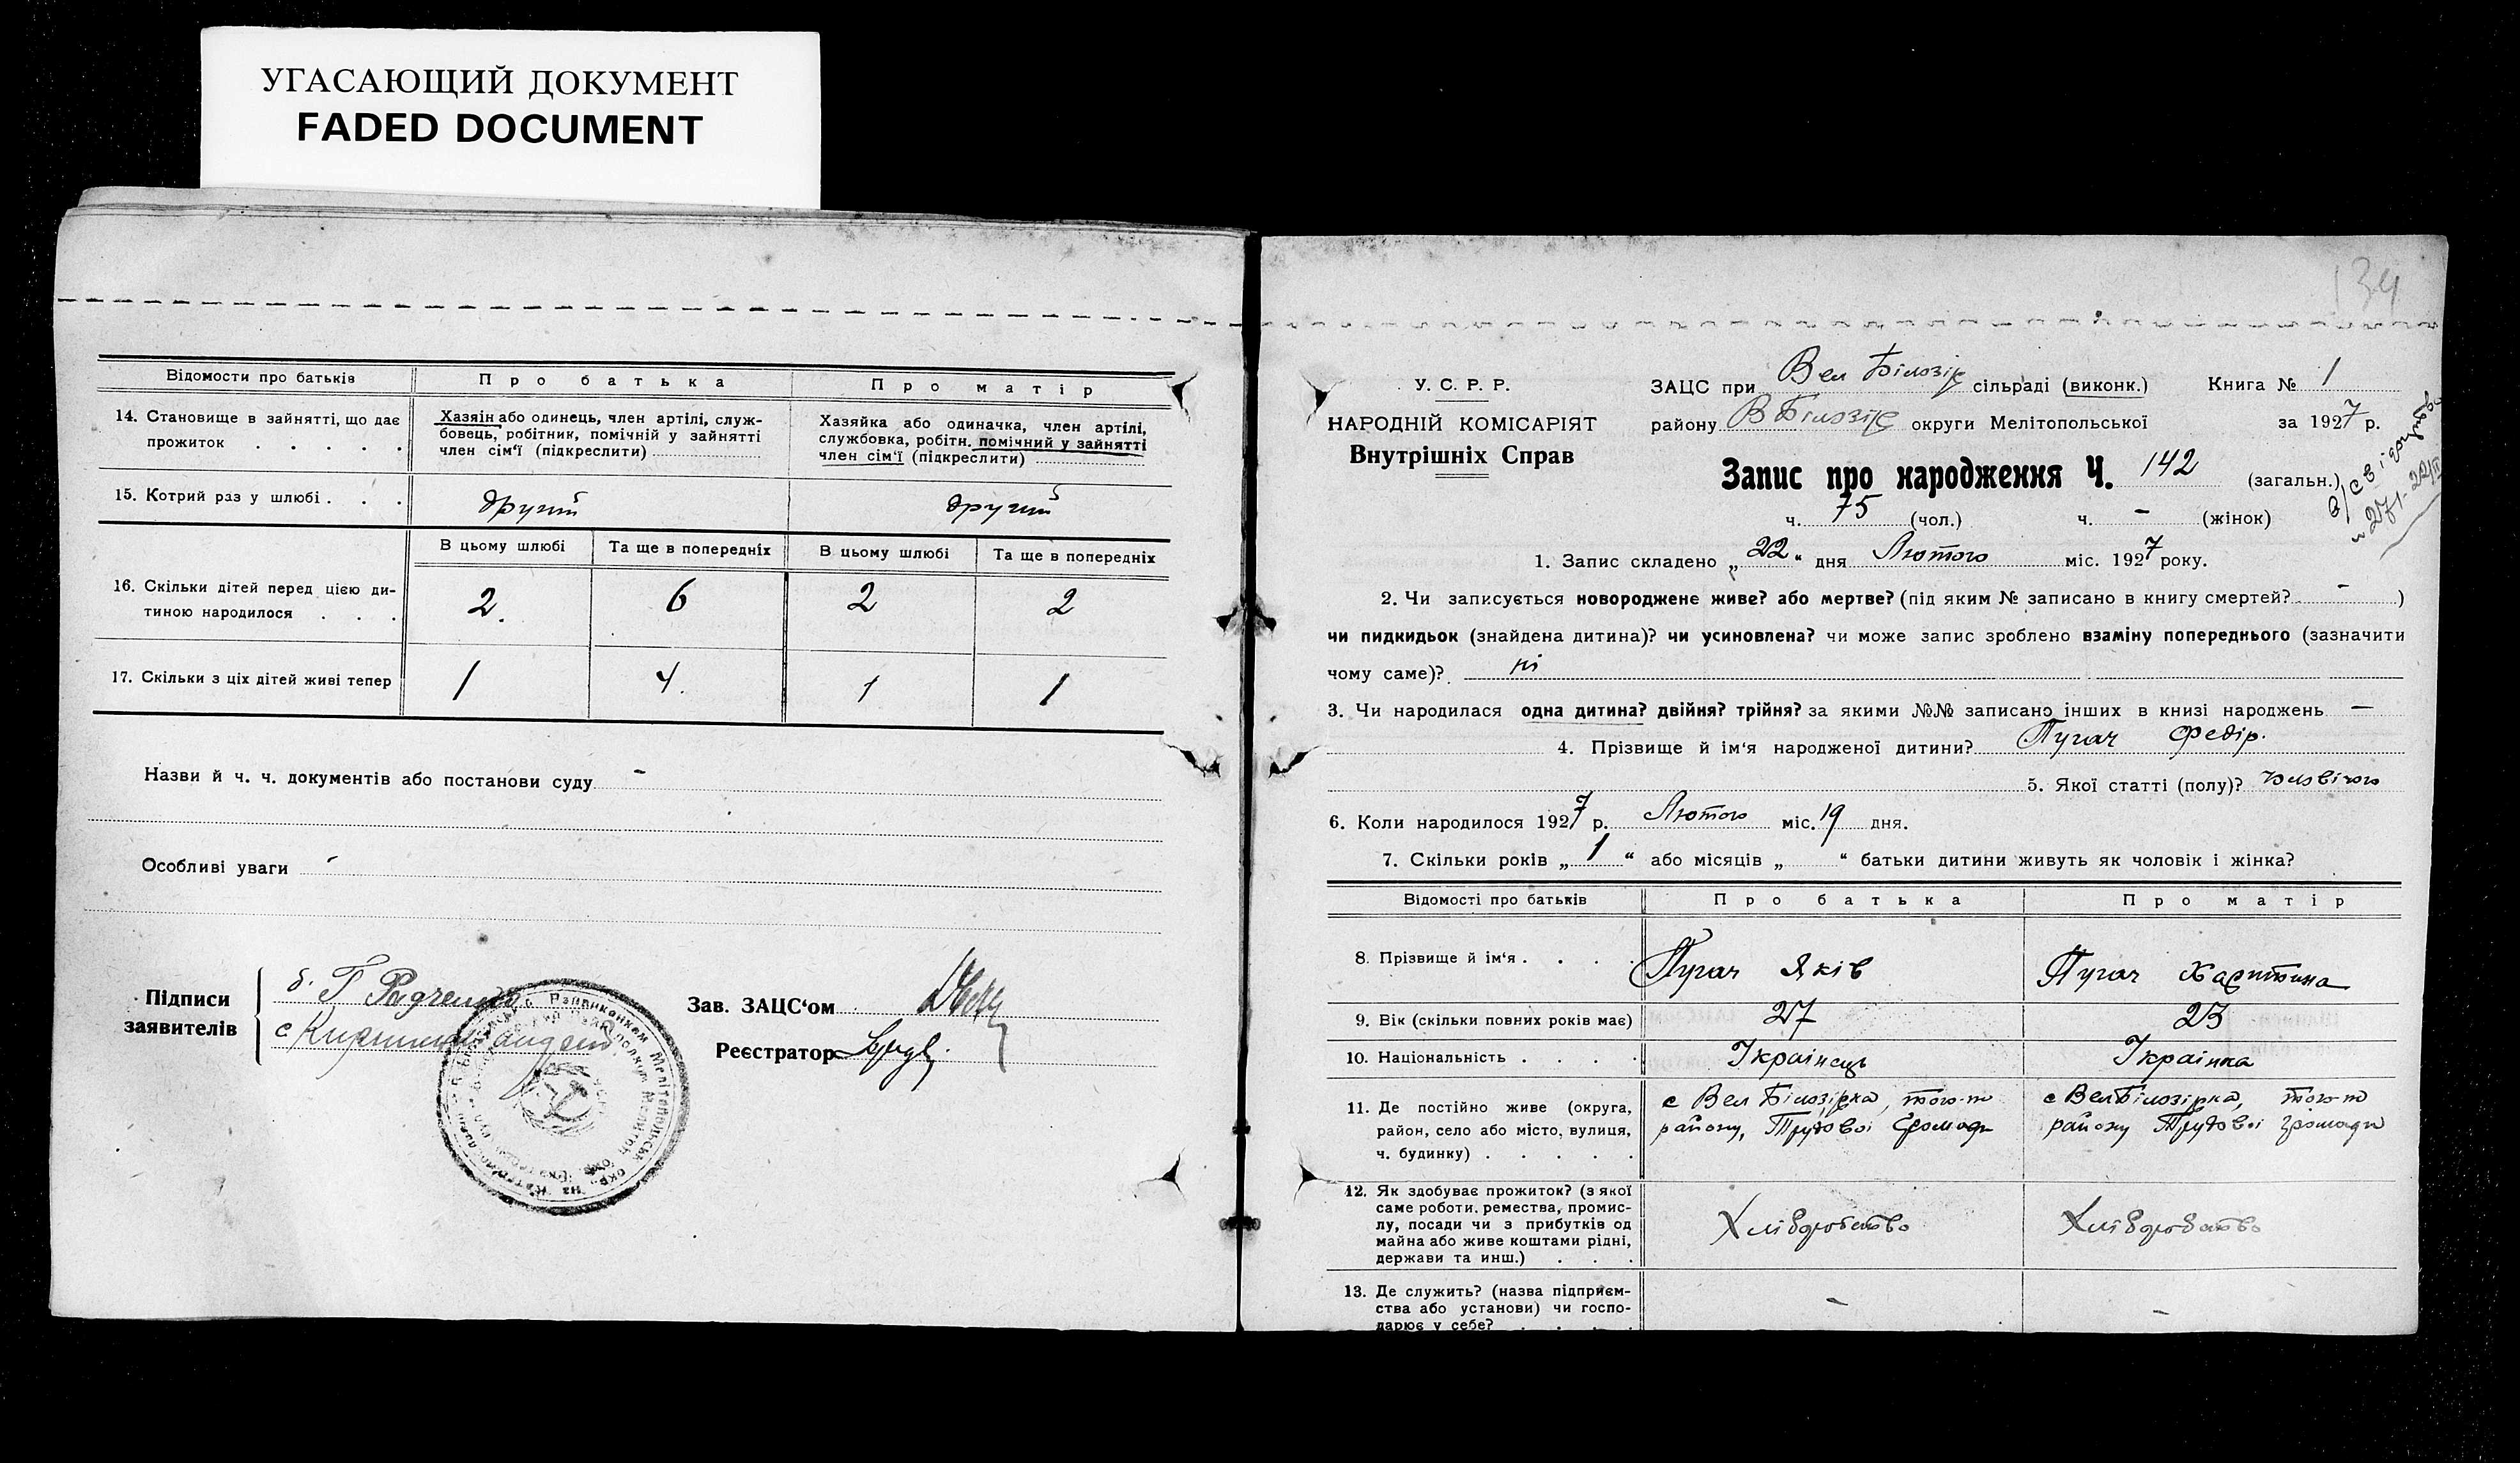 УГАСАЮЩИЙ ДОКУМЕНТ
FADED DOCUMENT
Відомости про батьків
Про батька
Про матір
14. Становище в зайнятті, що дає
прожиток . . . . .
Хазяін або одинець, член артілі, служ-
бовець, робітник, помічній у зайнятті
член сім'ї (підкреслити)
Хазяйка або одиначка, член артілі,
службовка, робітн. помічний у зайнятті
член сім'ї (підкреслити)
15. Котрий раз у шлюбі . . .
другий
другий
В цьому шлюбі
Та ще в попередніх
В цьому шлюбі
Та ще в попередніх
16. Скільки дітей перед цією ди-
тиною народилося . . .
2. 6 2 2
17. Скільки з ціх дітей живі тепер
1 4. 1 1
Назви й ч. ч. документів або постанови суду -
Особливі уваги -
Підписи
заявителів
Зав. ЗАЦС'ом
Реєстратор
134
У. С. Р. Р.
НАРОДНІЙ КОМІСАРІЯТ
Внутрішніх Справ
ЗАЦС при Вел Білозір сільраді (виконк.) Книга № 1
району В Білозір округи Мелітопольської за 1927 р.
Запис про народження Ч. 142 (загальн.)
ч. 75 (чол.) ч. - (жінок)
1. Запис складено „22“ дня Лютого міс. 1927 року.
2. Чи записується новороджене живе? або мертве? (під яким № записано в книгу смертей? - )
чи пидкидьок (знайдена дитина)? чи усиновлена? чи може запис зроблено взаміну попереднього (зазначити
чому саме)? ні
3. Чи народилася одна дитина? двійня? трійня? за якими №№ записано інших в книзі народжень —
4. Прізвище й ім'я народженої дитини? Пугач Федір.
5. Якої статті (полу)? чоловічого
6. Коли народилося 1927 р. Лютого міс. 19 дня.
7. Скільки років „1“ або місяців „ “ батьки дитини живуть як чоловік і жінка?
Відомості про батьків
Про батька
Про матір
8. Прізвище й ім'я . . . .
Пугач Яків
Пугач Харитина
9. Вік (скільки повних років має)
27
23
10. Національність . . . .
Українець
Українка
11. Де постійно живе (округа,
район, село або місто, вулиця,
ч. будинку) . . . . .
с Вел Білозірка, того-ж
району, Трудової Громади
с Вел Білозірка, того-ж
району Трудової громади
12. Як здобуває прожиток? (з якої
саме роботи. ремества, промис-
лу, посади чи з прибутків од
майна або живе коштами рідні,
держави та инш.) . . .
Хліборобство
Хліборобство
13. Де служить? (назва підприєм-
ства або установи) чи госпо-
дарює у себе? . . . .
-
-